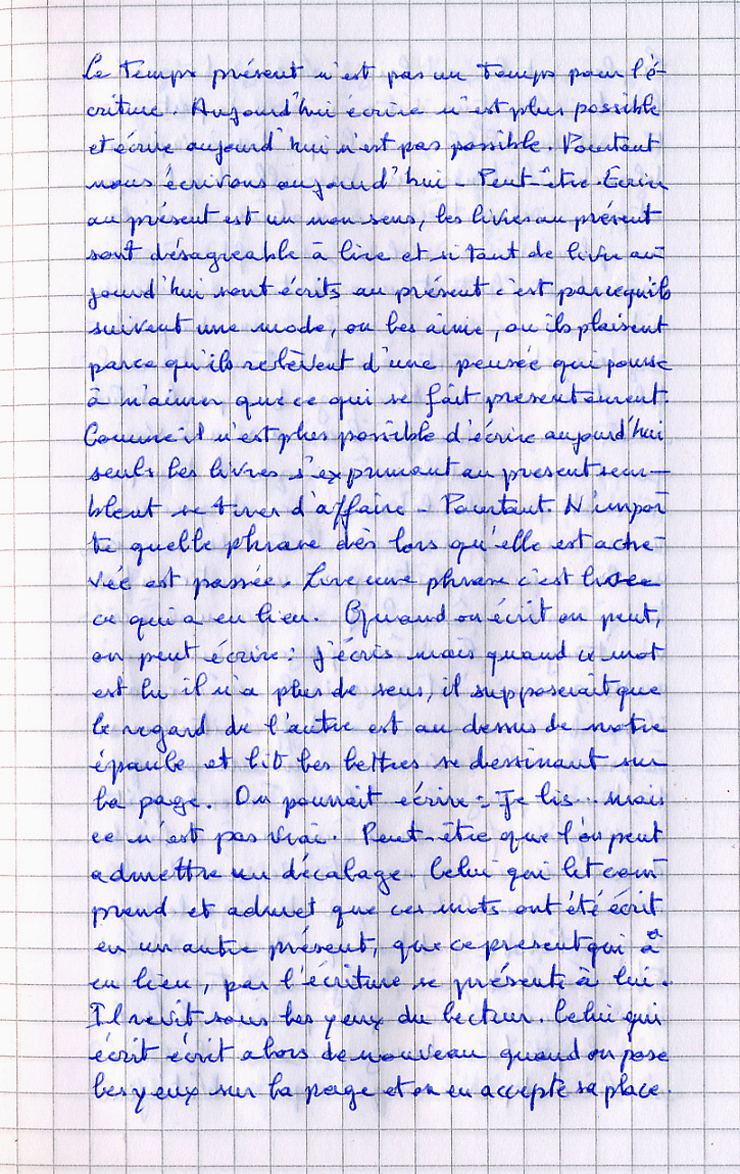 Le temps présent n'est pas un temps pour l'é-
criture. Aujourd'hui écrire n'est plus possible
et écrire aujourd'hui n'est pas possible. Pourtant
nous écrivons aujourd'hui - Peut-être. Ecrire
au présent est un non sens, les livres au présent
sont désagréable à lire et si tant de livre au-
jourd'hui sont écrits au présent c'est parcequ'ils
suivent une mode, on les aime, ou ils plaisent
parce qu'ils relèvent d'une pensée qui pousse
à n'aimer que ce qui se fait presentement.
Comme il n'est plus possible d'écrire aujourd'hui
seuls les livres s'exprimant au present sem-
blent se tirer d'affaire - Pourtant. N'impor-
te quelle phrase dès lors qu'elle est ache-
vée est passée. Lire une phrase c'est lire
ce qui a eu lieu. Quand on écrit on peut,
on peut écrire : j'écris mais quand ce mot
est lu il n'a plus de sens, il supposerait que
le regard de l'autre est au dessus de notre
épaule et lit les lettres se dessinant sur
la page. On pourrait écrire : Je lis... mais
ce n'est pas vrai. Peut-être que l'on peut
admettre un décalage. Celui qui lit com-
prend et admet que ces mots ont été écrit
en un autre présent, que ce present qui a
eu lieu, par l'écriture se présente à lui.
Il revit sous les yeux du lecteur. Celui qui
écrit écrit alors de nouveau quand on pose
les yeux sur la page et on en accepte sa place.